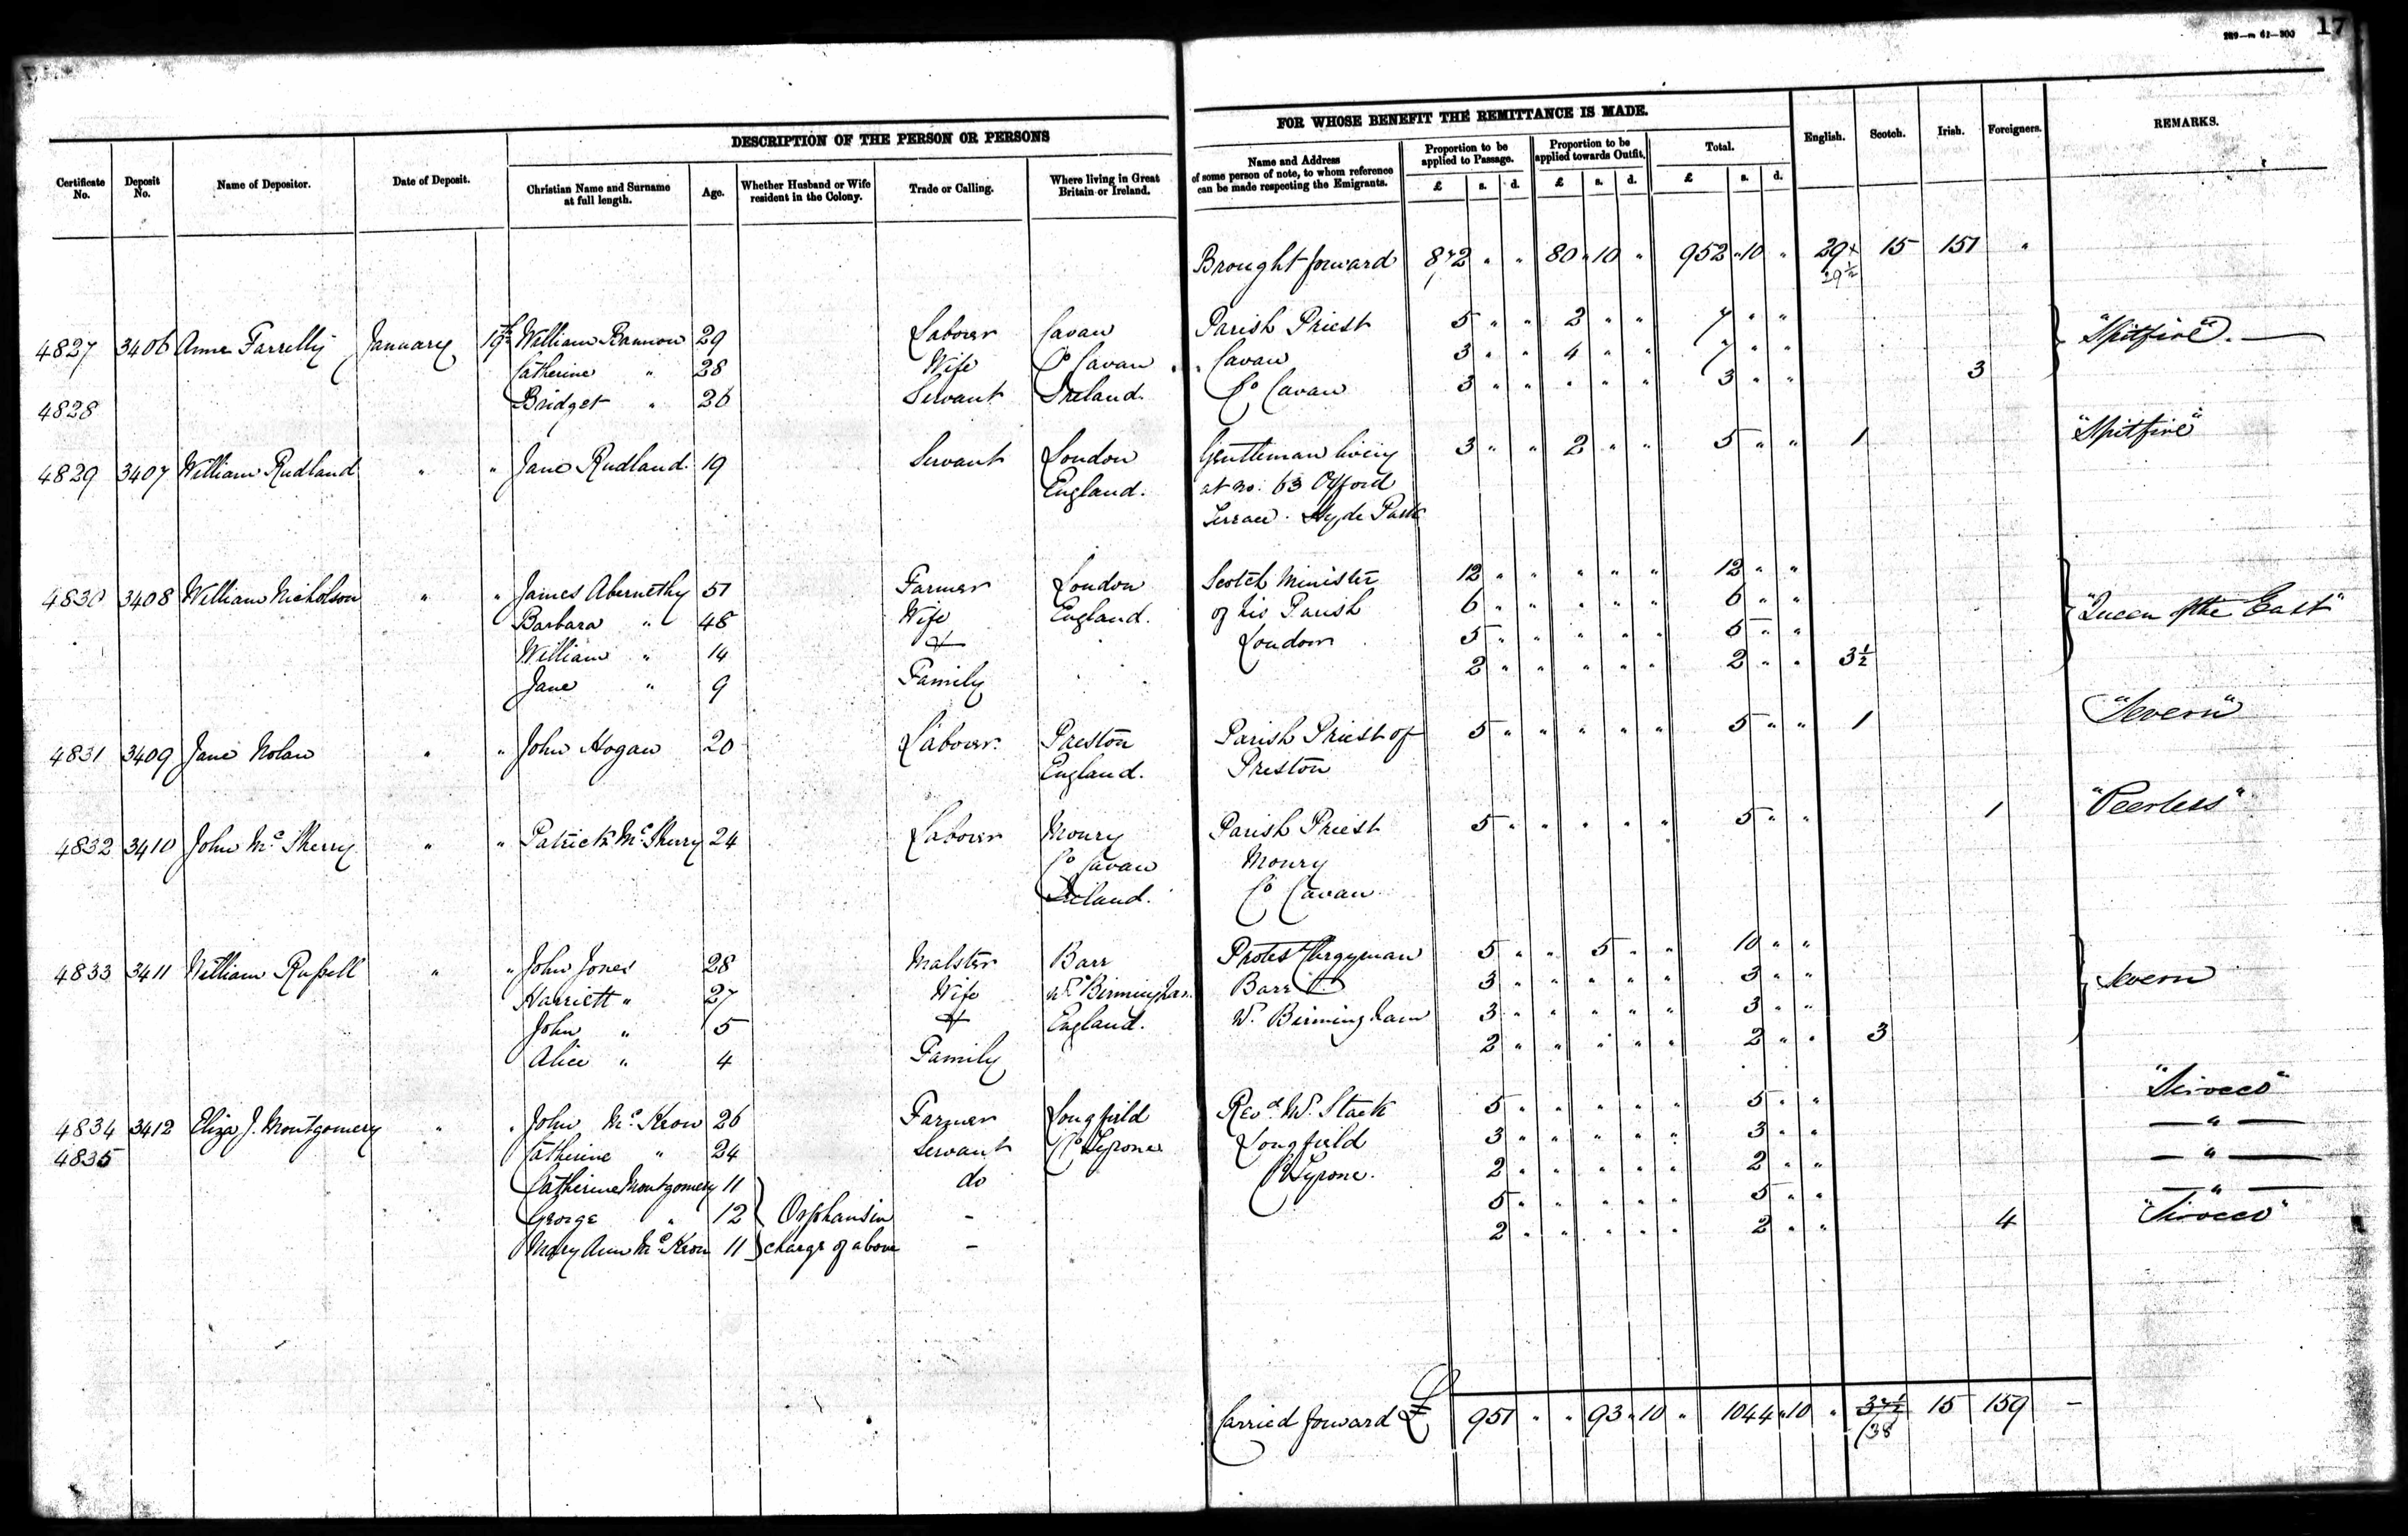 17
FOR WHOSE BENEFIT THE REMITTANCE IS MADE.
DESCRIPTION OF THE PERSON OR PERSONS
Certificate No. Deposit No. Name of Depositor. Date of Deposit. Christian Name and Surname at full length. Age. Whether Husband or Wife resident in the Colony. Trade or Calling. Where living in Great Britain or Ireland. Name and Address of some person of note, to whom reference can be made respecting the Emigrants. Proportion to be applied to Passage. £ s. d. Proportion to be applied towards Outfit. £ s. d. Total. £ s. d. English. Scotch. Irish. Foreigners. REMARKS.
Brought forward 872 " " 80 " 10 " 952 " 10 " 29½ 15 151 "
29½
4827 3406 Anne Farrelly January 19th William Bannon 29 Labourer Cavan Parish Priest 5 " " 2 " " 7 " " "Spitfire"
Catherine " 28 Wife Co Cavan Cavan 3 " " 4 " " 7 " "
4828 Bridget " 26 Servant Ireland. Co Cavan 3 " " " " " 3 " " 3
4829 3407 William Rudland " " Jane Rudland 19 Servant London Gentleman living 3 " " 2 " " 5 " " 1 "Spitfire"
England. at no. 63 Oxford
Terrace. Hyde Park
4830 3408 William Nicholson " " James Abernethy 51 Farmer London Scotch Minister 12 " " " " " 12 " " "Queen of the East"
Barbara " 48 Wife England. of his Parish 6 " " " " " 6 " "
William " 14 & London 5 " " " " " 5 " "
Jane " 9 Family 2 " " " " " 2 " " 3½
4831 3409 Jane Nolan " " John Hogan 20 Labourer Preston Parish Priest of 5 " " " " " 5 " " 1 "Severn"
England. Preston
4832 3410 John McSherry " " Patrick McSherry 24 Labourer Moury Parish Priest 5 " " " " " 5 " " 1 "Peerless"
Co Cavan Moury
Ireland. Co Cavan
4833 3411 William Russell " " John Jones 28 Malster Barr Protest Clergyman 5 " " 5 " " 10 " " Severn
Harriett " 27 Wife nr Birmingham Barr 3 " " " " " 3 " "
John " 5 & England. nr Birmingham 3 " " " " " 3 " "
Alice " 4 Family 2 " " " " " 2 " " 3
4834 3412 Eliza J. Montgomery " " John McKeon 26 Farmer Longfield Revd. W. Stack 5 " " " " " 5 " " "Sirocco"
4835 Catherine " 24 Servant Co Tyrone Longfield 3 " " " " " 3 " " "
Catherine Montgomery 11 do Co Tyrone. 2 " " " " " 2 " " "
George " 12 Orphans in - 5 " " " " " 5 " " "
Mary Ann McKeon 11 charge of above - 2 " " " " " 2 " " 4 "Sirocco"
Carried forward £ 951 " " 93 " 10 " 1044 " 10 " 15 159 -
38